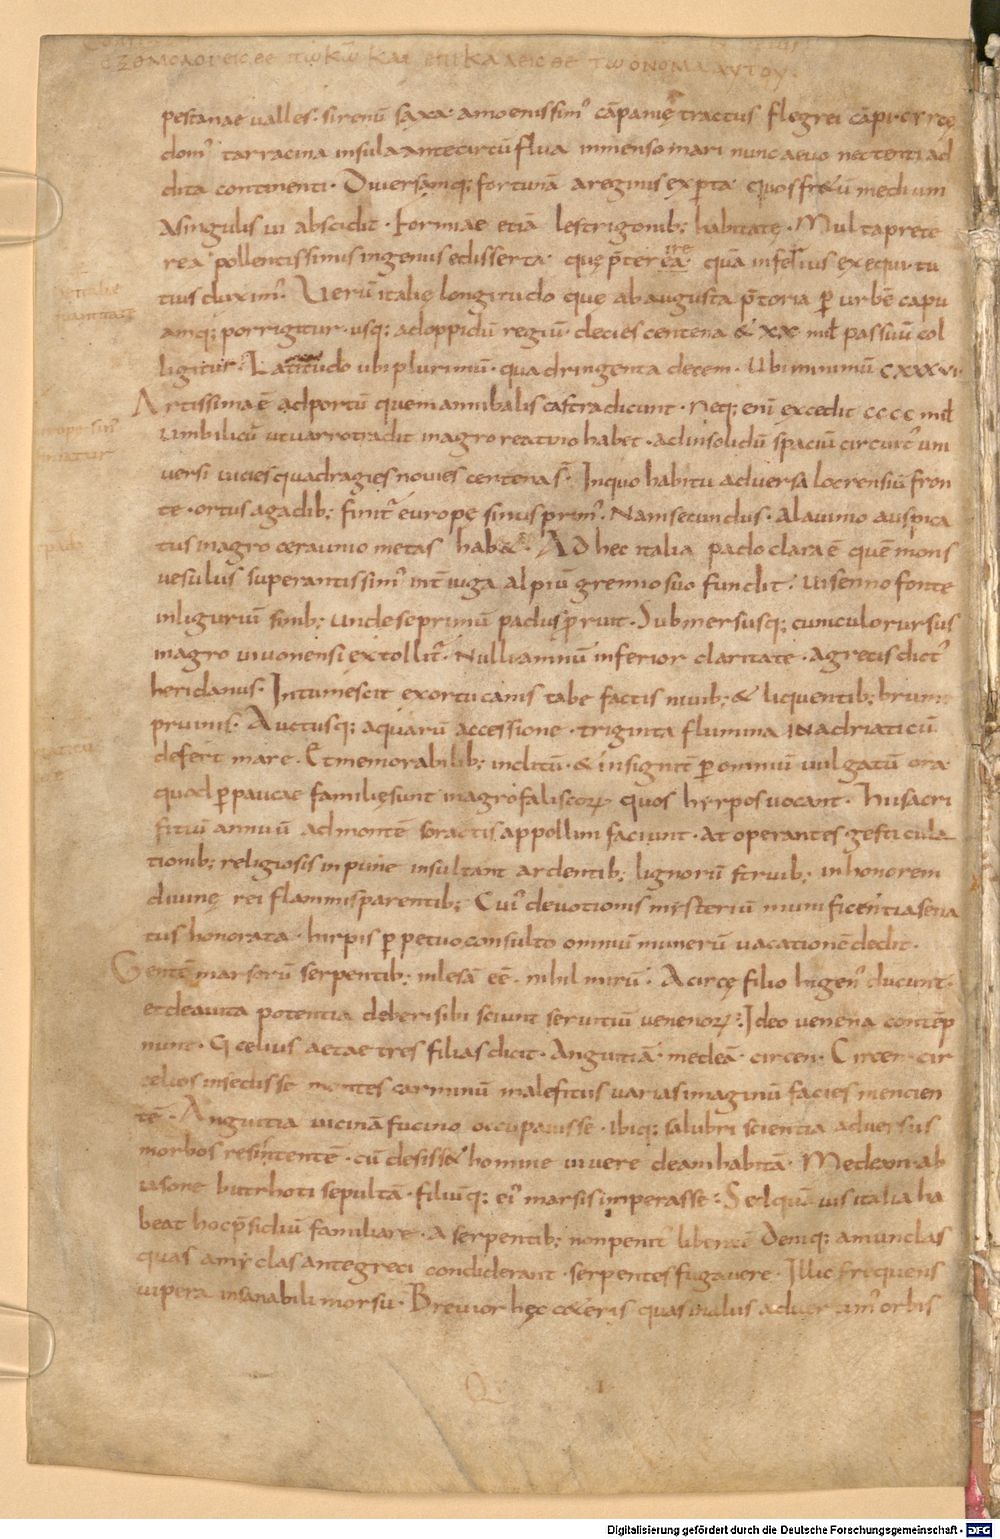 ΕΞΟΜΟΛΟΓΕΙCΘΕ ΤΩ ΚΩ ΚΑΙ ΕΠΙΚΑΛΕΙCΘΕ ΤΟ ΟΝΟΜΑ ΑΥΤΟΥ
pestanae ualles · sirenū saxa · amoenissim' cāpanię tractus flegrei cāpi
dom' tarracina insula ante circū flua inmenso mari nunc aeuo nec tenti ad
dita continenti · Diuersamq; fortunā areginis exp̄ta quos fr&ū medium
Asingulis ui abscidit · Formiae etiā lestrigonib; habitatę · Multa prete
rea pollentissimis ingeniis edisserta quę p̄terea quā infelius exequi · tu
tius dixim' · Uerū italię longitudo quę ab augusta p̄toria p̄ urbē capu
amq; porrigitur · usq; ad oppidū regiū · decies centena & xx mił passuū col
ligitur · Latitudo ubi plurimū · quadringenta decem · Ubi minimū cxxxvi
Artissima ē ad portū quem annibalis castra dicunt · Neq; eni excedit cccc mił
Umbilicū ut uarro tradit in agro reatino habet · ad in solidū spaciū circuit' uni
uersi uicies quadragies nouies centena s̄ · In quo habitu aduersa locrensiū fron
te · ortus agadib; finit' europę sinus prim' · Nam secundus · a lauinio auspica
tus in agro ceraunio metas hab& · Ad hec italia pado clara ē quē mons
uesulus superantissim' int̄ iuga alpiū gremio suo fundit · uisendo fonte
in liguriū finib; unde se primū padus p̄ruit · Submersusq; cuniculo rursus
in agro uiuonensi extollit' · Nulli amniū inferior claritate · agrecis dict'
heridanus · Intumescit exortu canis tabe factis niuib; & liquentib; brume
pruinis · Auctusq; aquarū accessione · triginta flumina IN adriaticū
defert mare · Et memorabilib; inclitū · & insignit̄ p̄ omniū uulgatū ora
quod p̄paucae familię sunt in agro faliscorꝝ quos hyrpos uocant · hi sacri
fitiū annuū ad montē soractis appollini faciunt · At operantes · gesticula
tionib; religiosis inpune insultant ardentib; lignorū struib; in honorem
diuinę rei flammis parentib; Cui' deuotionis mysteriū munificentia sena
tus honorata · hirpis p̄petuo consulto omniū munerū uacationē dedit ·
Gentē marsorū serpentib; inlesā eē · nihil mirū · A circę filio hi gen' ducunt ·
et de auita potentia deberi sibi sciunt seruitiū uenenorꝝ · Ideo uenena contēp
nunt · G celius aetae tres filias dicit · Anguitiā · medeā · circen · Circen cir
celios insedisse montes carminū malefitiis uarias imaginū facies mencien
tē · Anguitia uicinā fucino occupauisse · ibiq; salubri scientia aduersus
morbos resintentē · cū desiss& homine uiuere deam habitā · Medeen ab
iasone buthroti sepultā · filiūq; ei' marsis imperasse · Sed quāuis italia ha
beat hoc p̄sidiū familiare · A serpentib; non penit' Deniq; amunclas
quas amyclas ante greci condiderant · serpentes fugauere · Illic frequens
uipera insanabili morsu · Breuior hęc c&eris quas in aliis orbis